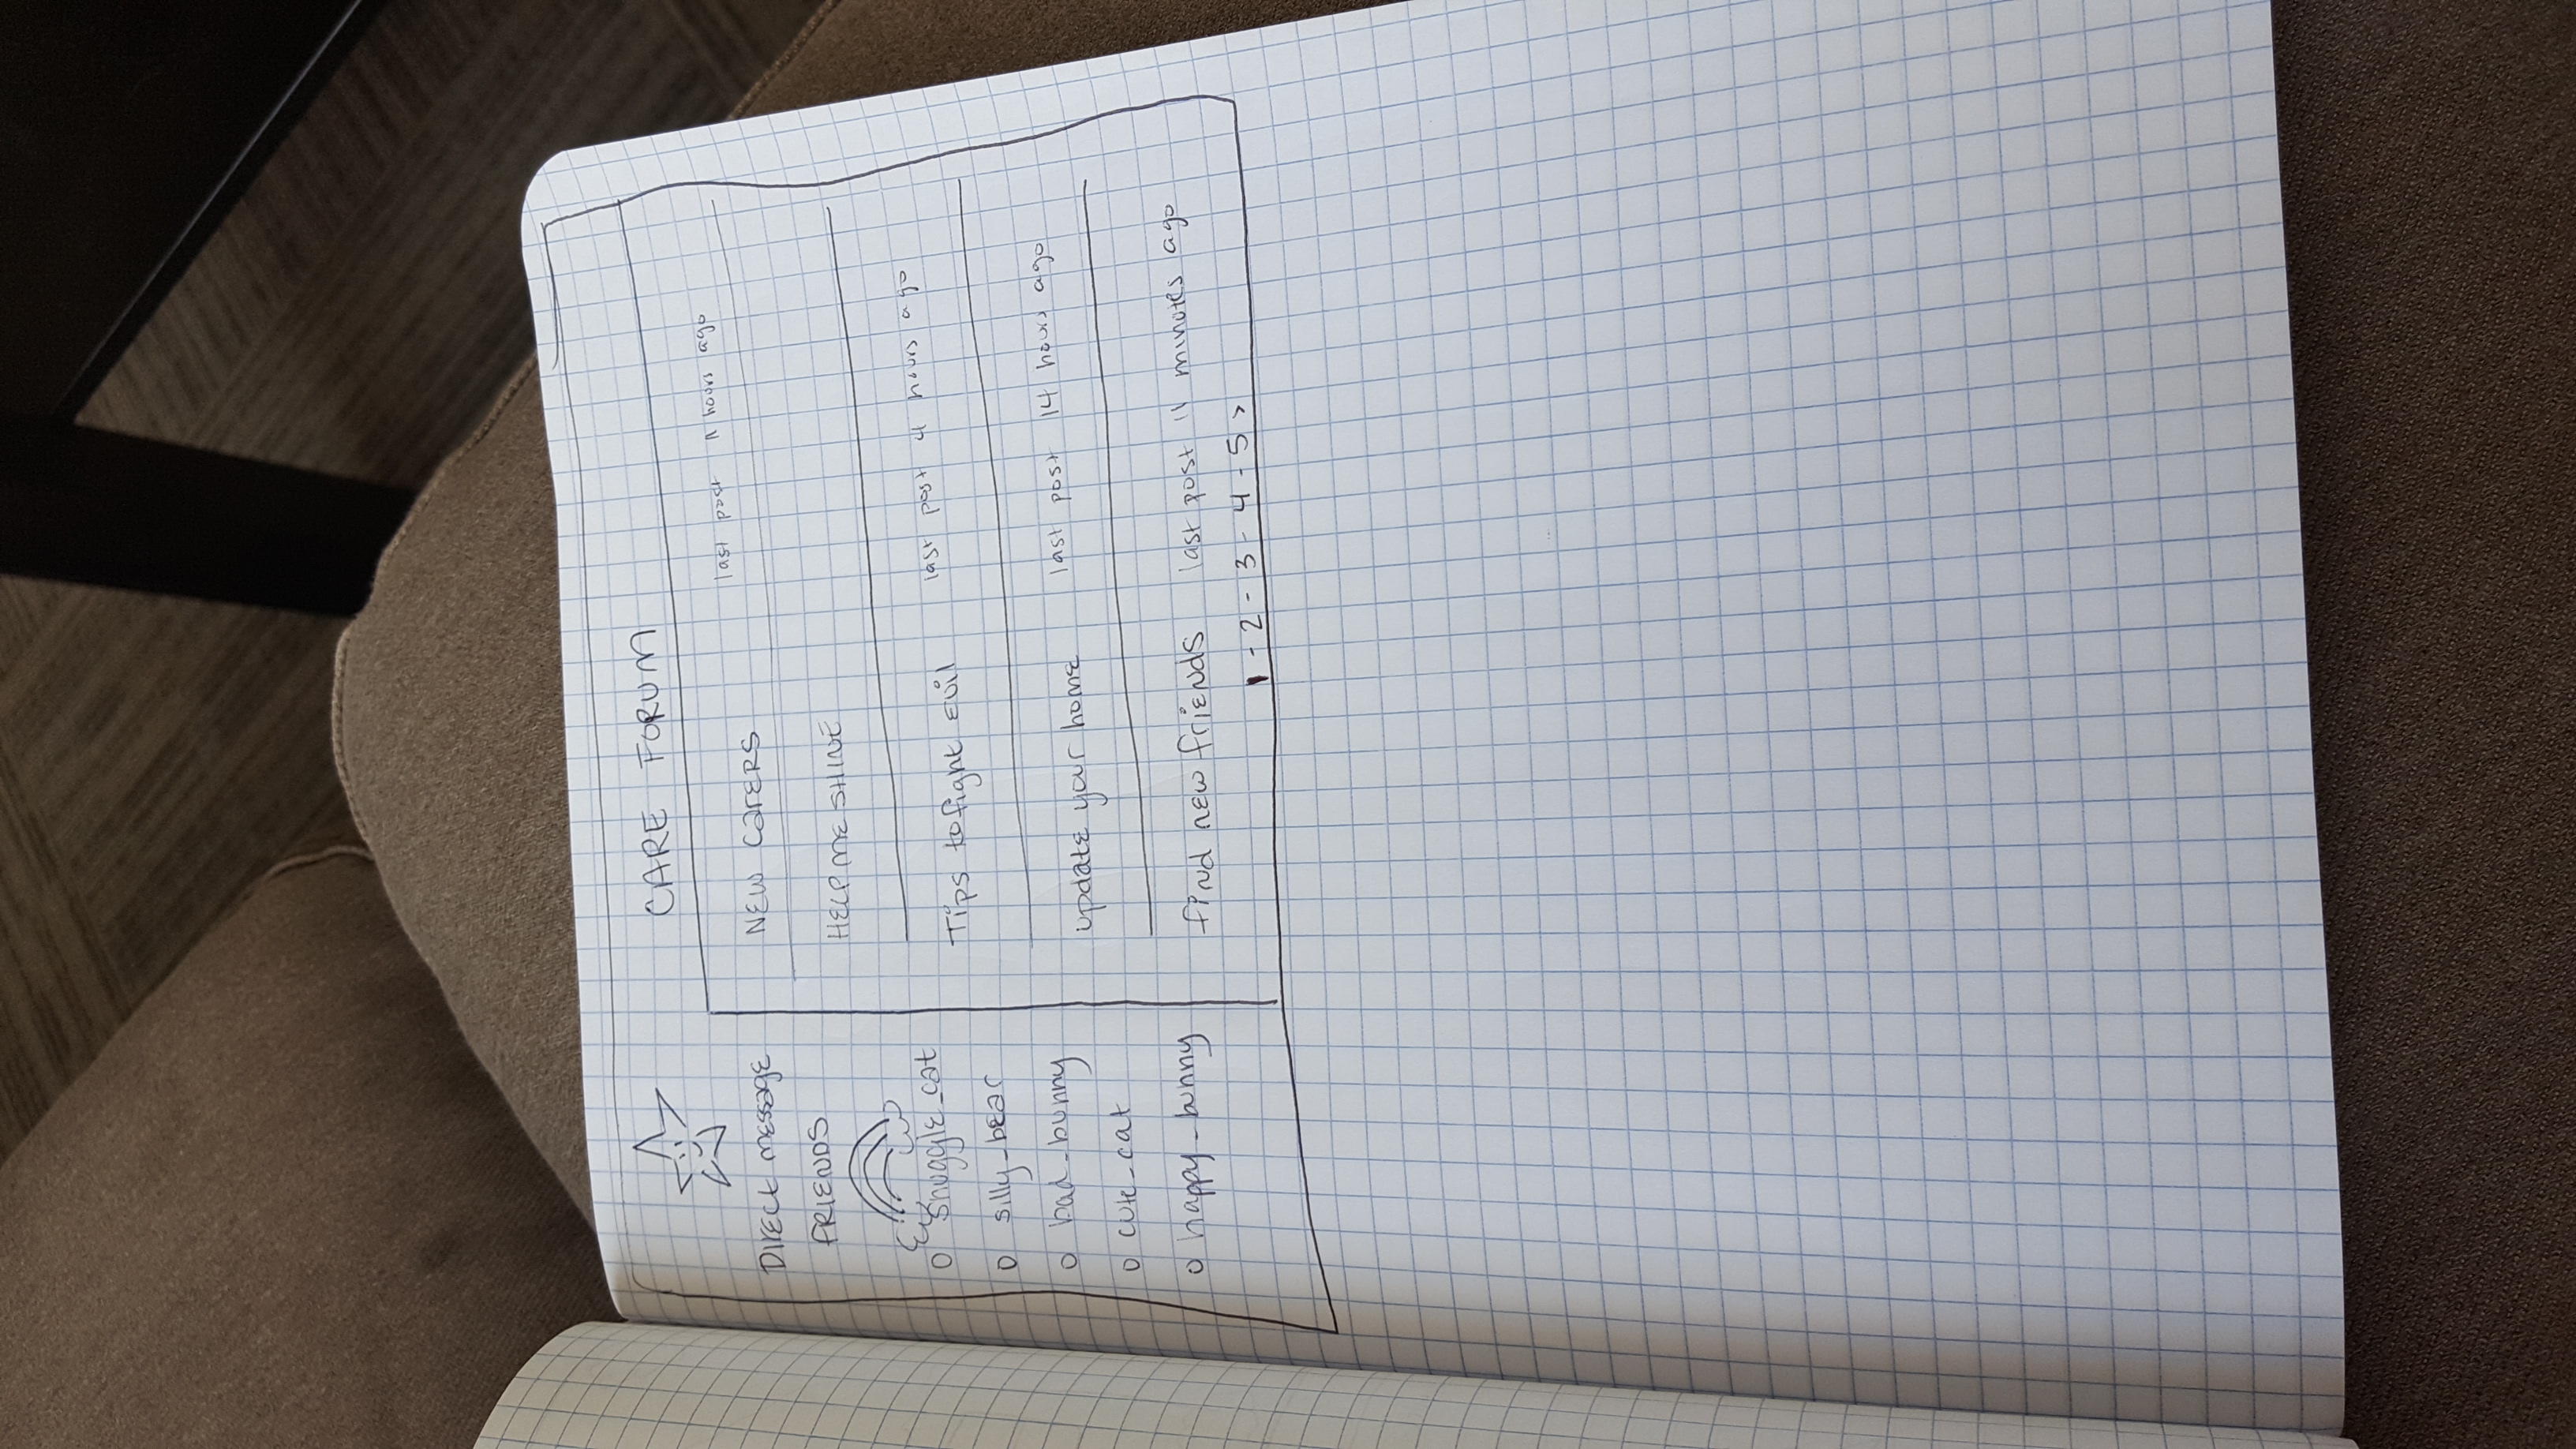 CARE FORUM
DIRECT MESSAGE
FRIENDS
o snuggle_cat
o silly_bear
o bad_bunny
o cute_cat
o happy_bunny
NEW CARERS last post 11 hours ago
HELP ME SHINE
Tips to fight evil last post 4 hours ago
update your home last post 14 hours ago
find new friends last post 11 minutes ago
1 - 2 - 3 - 4 - 5 >